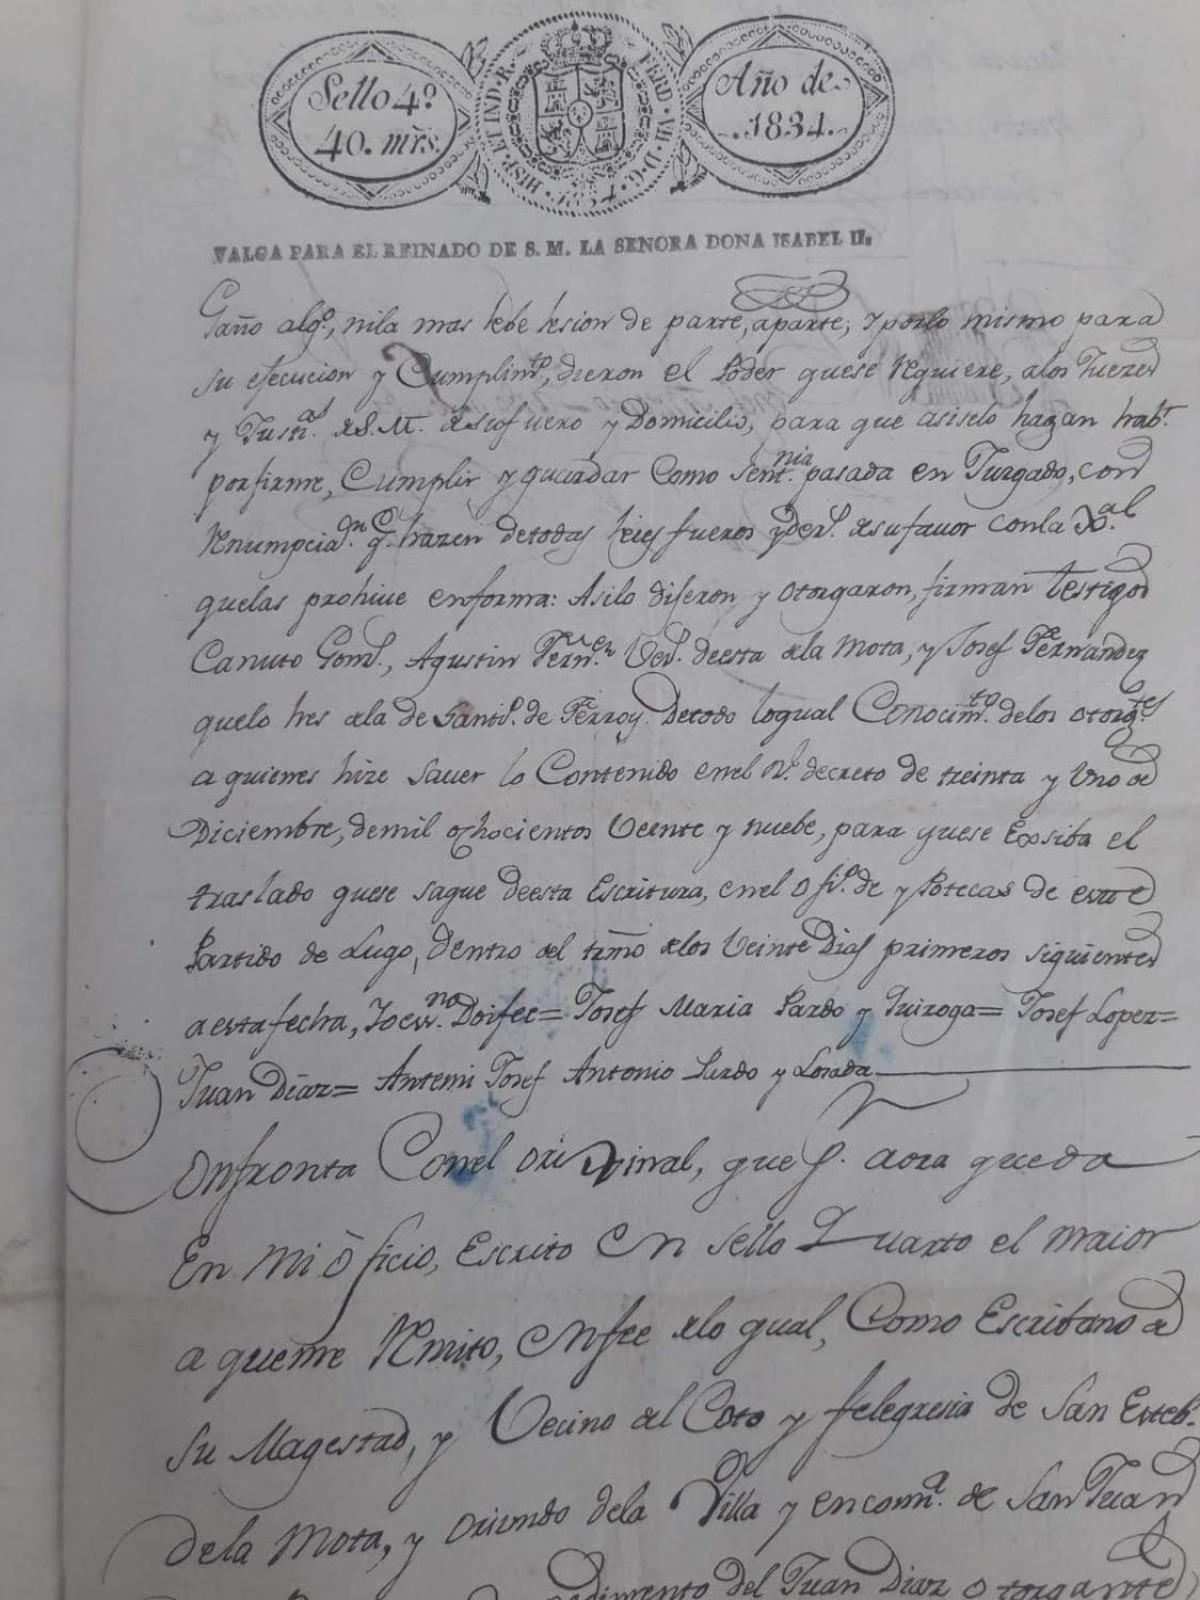 Sello 4º
40. mrs.
HISP. ET IND. R.
FERD. VII. D. G.
1834
Año de
1834.
VALGA PARA EL REINADO DE S. M. LA SEÑORA DOÑA ISABEL II.
gaño algº., nila mas lebe lesion de parte, aparte, y porlo mismo para
su efecucion y Cumplimto., dieron el Poder quese Requiere, alos Juezes
y Justas. de S.M. desufuero y Domicilio, para que asiselo hagan habr.
porfirme, Cumplir y guardar Como Sentnia. pasada en Jurgado, con
Renumpciaon. q. hazen detodas leies fueros yders. desufavor conla Gral.
quelas prohive enforma: Asilo diferon y otorgaron, firman testigos
Canuto Gomz., Agustin Fernez. Vezs. deesta dela Mota, y Josef Fernandez
quelo hes dela de Santigo. de Ferroy. Detodo loqual Conocimto. delos otorgtes.
a quienes hize Saver lo Contenido enel Rl. decreto de treinta y Uno de
Diciembre, demil ochocientos Veinte y nuebe, para quese Exsiba el
traslado quese saque deesta Escritura, enel ofizo. de ypotecas de este
Partido de Lugo, dentro del trmo. delos Veinte Dias primeros siguientes
aesta fecha, Yo essno. Doifee= Josef Maria Pardo y Quiroga= Josef Lopez=
Juan Diaz= Antemi Josef Antonio Pardo y Losada
Confronta Conel original, que p. aora queda
En mi oficio, Escrito en sello Quarto el maior
a queme Remito, enfee delo qual, Como Escribano de
su Magestad, y Vecino del Coto y felegresia de San Esteb.
dela Mota, y oriundo dela Villa y encoma. de San Juan
del Juan Diaz otorgante